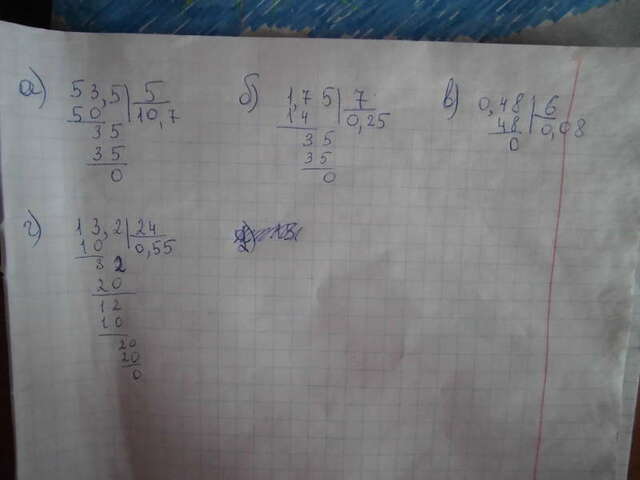 а) 53,5 5 б) 1,75 7 в) 0,48 6
50 10,7 14 0,25 48 0,08
35 35 0
35 35
0 0
г) 13,2 24
10 0,55
32
20
12
10
20
20
0